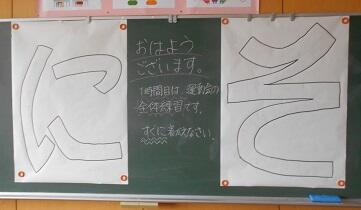 に
おはよう
ございます。
1時間目は、運動会の
全体練習です。
すぐに着がえなさい。
そ